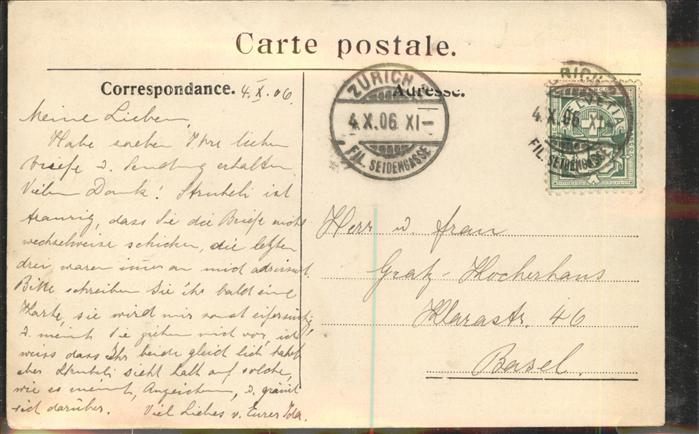 Carte postale.
Correspondance. 4.X.06.
Adresse.
ZÜRICH
4.X.06 XI–
FIL. SEIDENGASSE
ZÜRICH
HELVETIA
4.X.06 XI–
FIL. SEIDENGASSE
Meine Lieben,
Habe soeben Ihre lieben
Briefe u. Sendung erhalten.
Vielen Dank! Strubeli ist
traurig, dass Sie die Briefe nicht
wechselweise schicken, die letzten
drei waren immer an mich adressiert.
Bitte schreiben Sie ihr bald eine
Karte, sie wird mir sonst eifersüchtig
u. meint Sie ziehen mich vor, ich
weiss dass Ihr beide gleich lieb habt
aber Strubeli sieht halt auf solche,
wie es meint, Anzeichen, u. grämt
sich darüber. Viel Liebes v. Eurer Ida.
Herr u. Frau
Klarastr. 46
Basel.